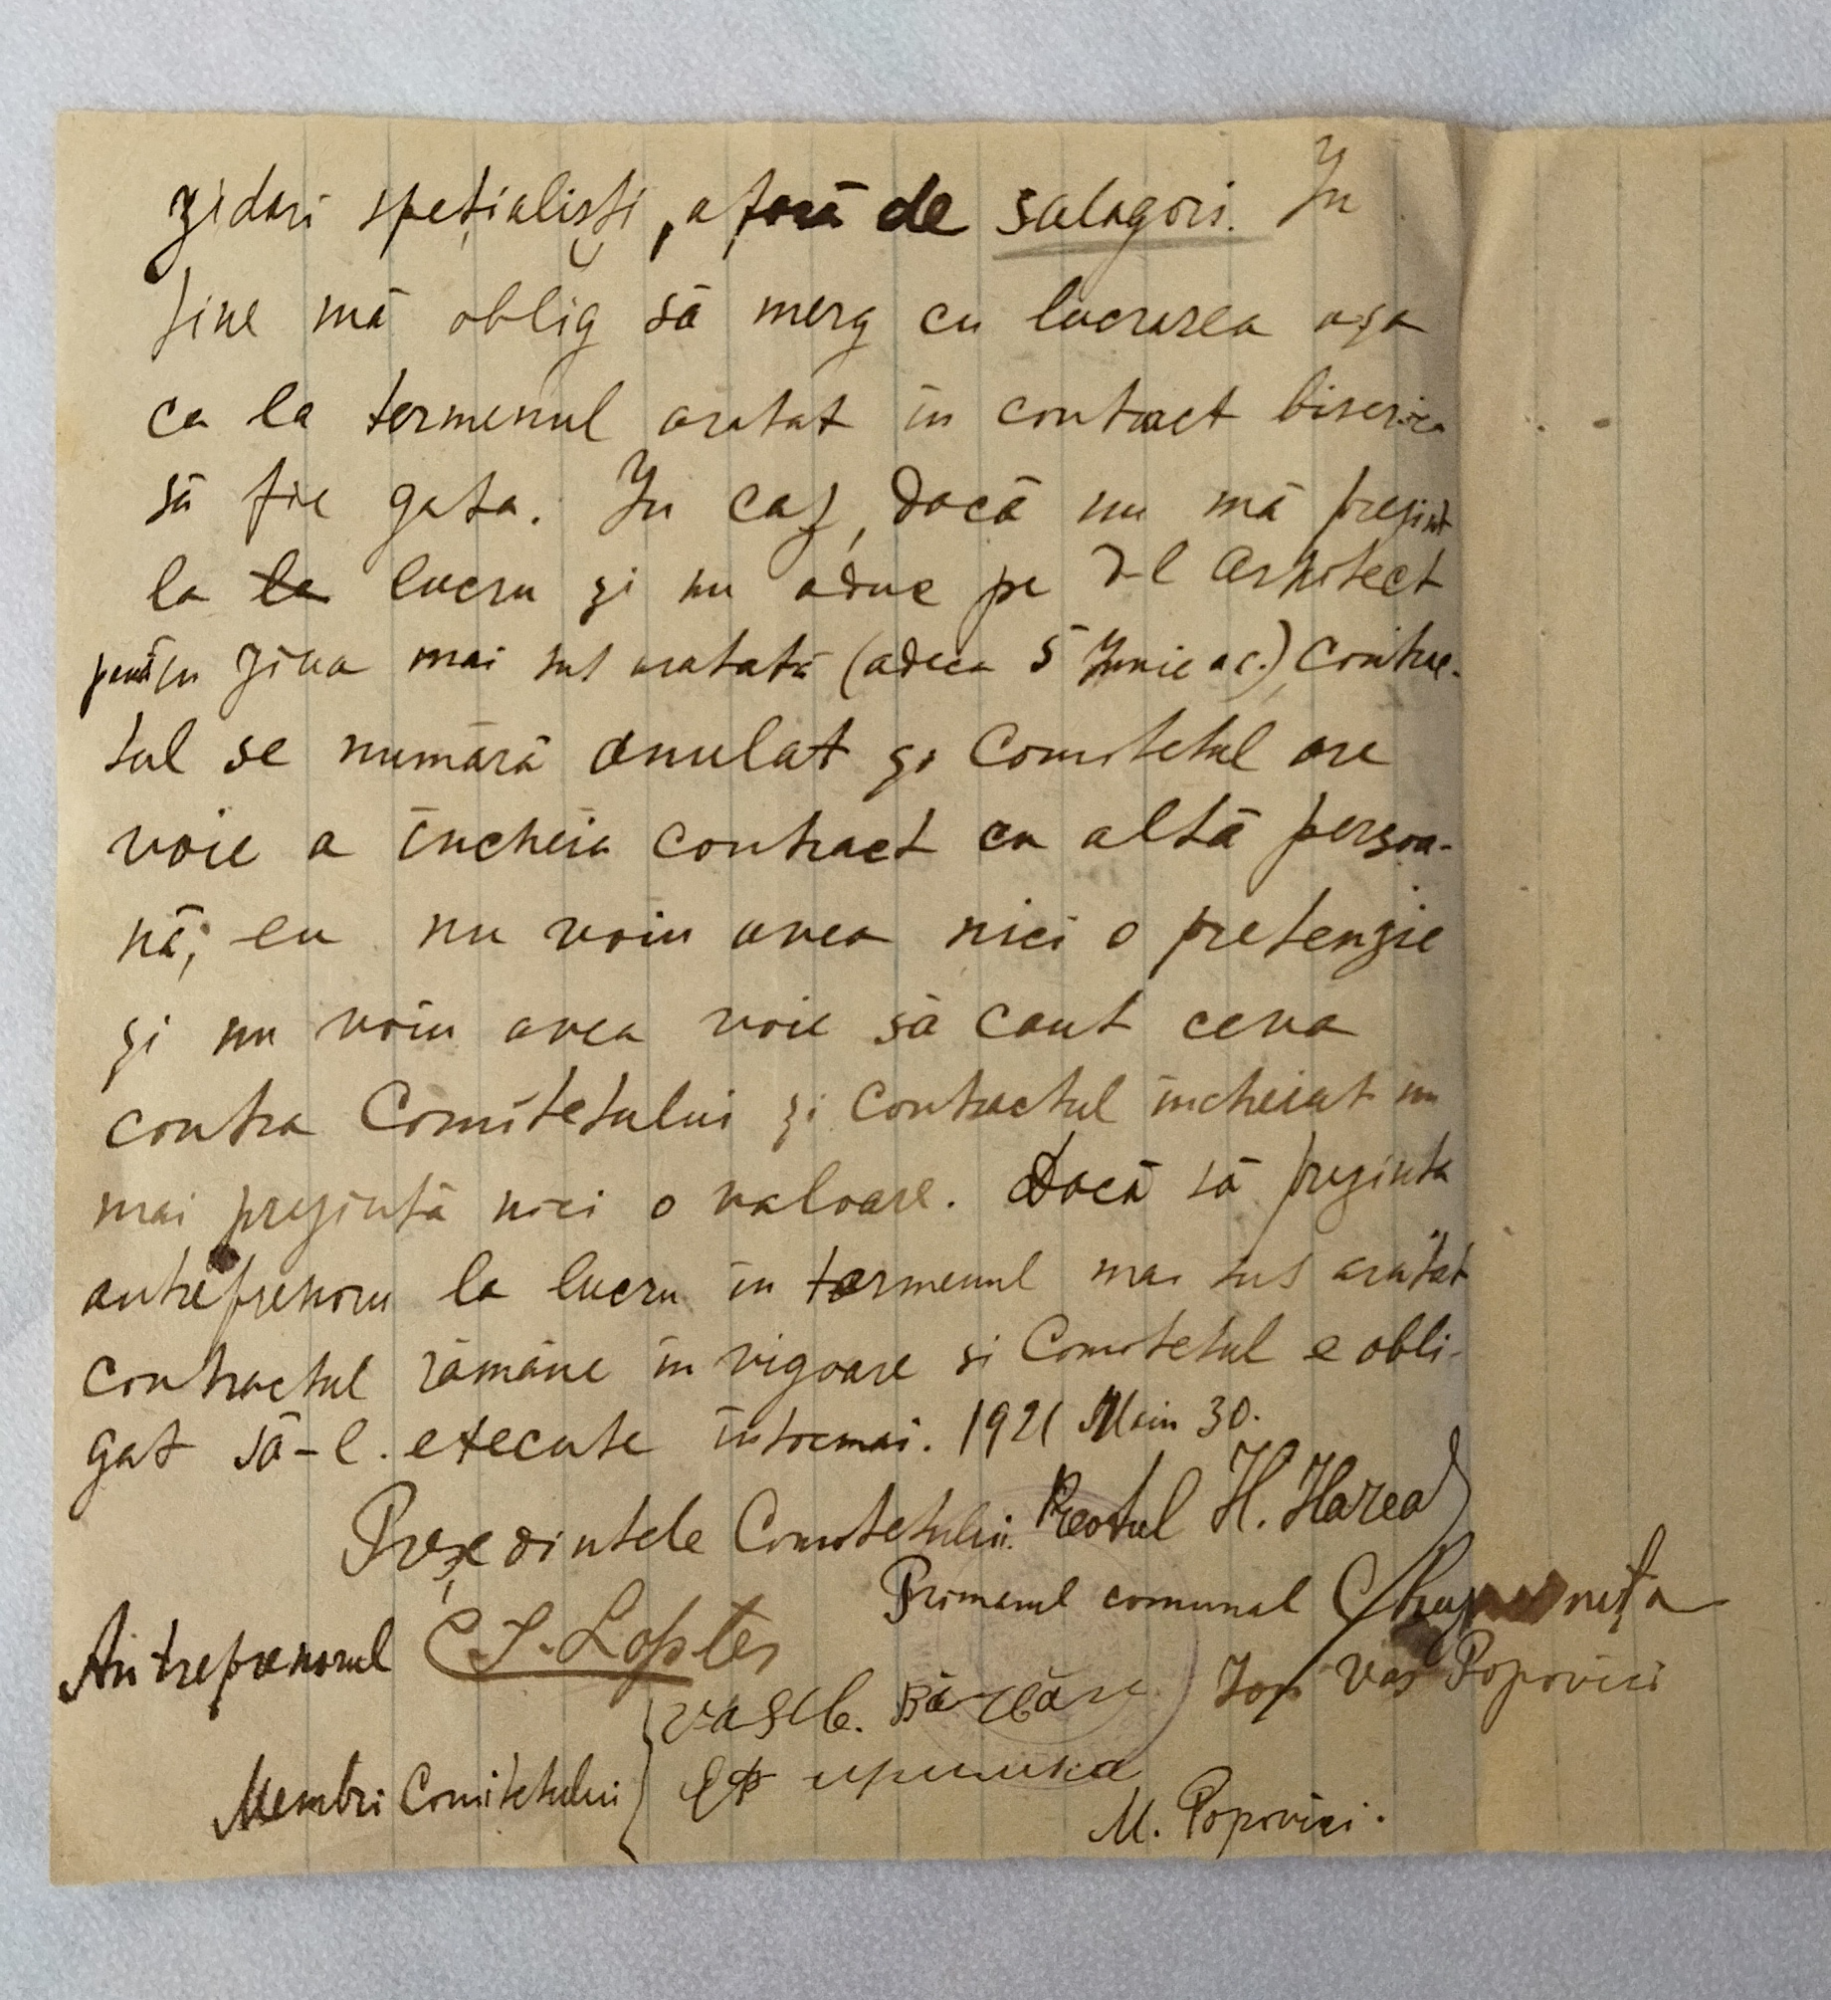 zidari spețialiști, afară de salagori. In
fine mă oblig să merg cu lucrarea așa
ca la termenul arătat in contract biserica
să fie gata. In caz, dacă nu mă prezint
la la lucru și nu aduc pe D-l Arhitect
pentru ziua mai sus arătată (adeca 5 Iunie a c.) Contrac-
tul se numără anulat și Comitetul are
voie a incheia contract cu altă persoa-
nă; eu nu voiu avea nici o pretenzie
și nu voiu avea voie să caut ceva
contra Comitetului și Contractul incheiat nu
mai prezintă nici o valoare. Dacă să prezinta
antreprenoru la lucru in termenul mai sus arătat
contractul rămâne in vigoare si Comitetul e obli-
gat să-l execute intocmai. 1921 Main 30.
Președintele Comitetului Preotul H. Harea
Primarul comunal
Antreprenorul C S. Lopter
Vas Popovici
Membri Comitetului
M. Popovici.